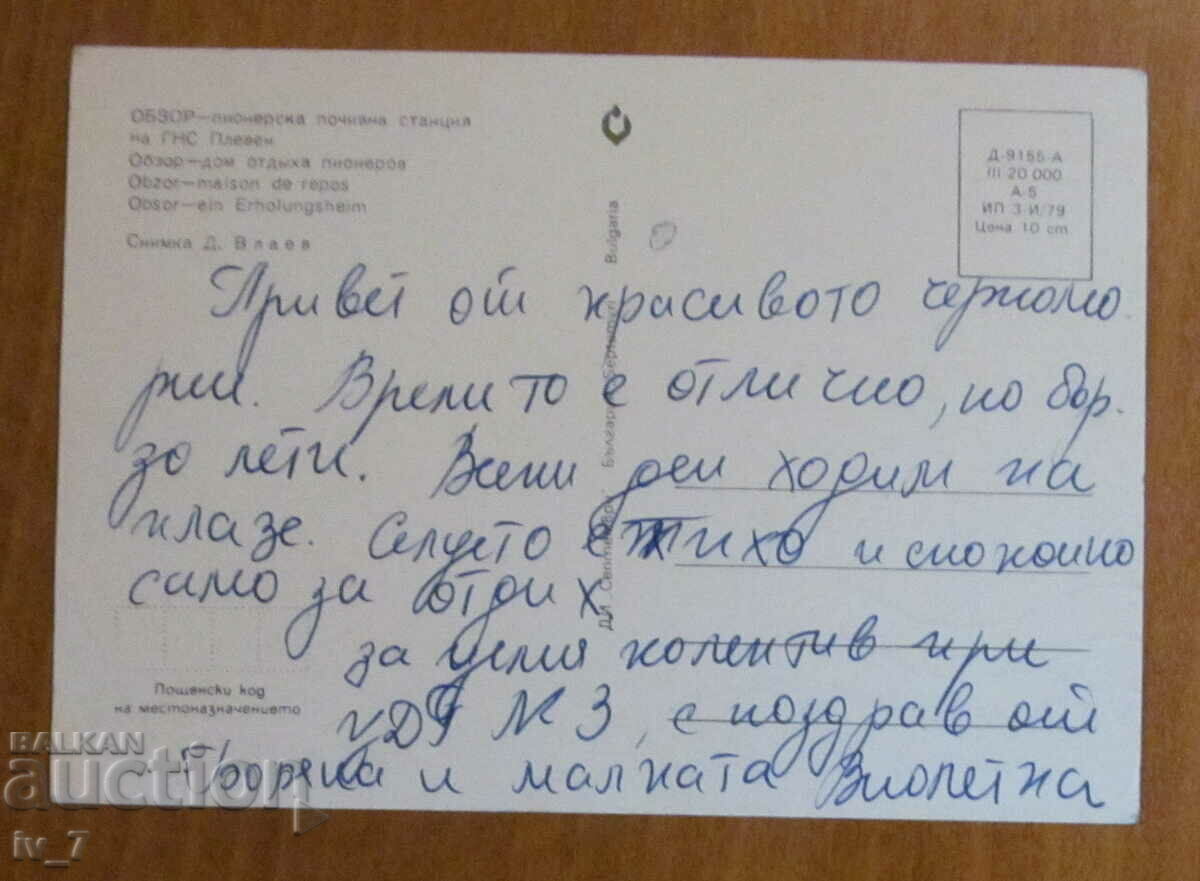 ОБЗОР—пионерска почивна станция
на ГНС Плевен
Обзор—дом отдыха пионеров
Obzor—maison de repos
Obsor—ein Erholungsheim
Снимка Д. Влаев
Д-9155-А
III 20 000
А-5
ИП 3-И/79
Цена 10 ст
Bulgaria
Септември
Привет от красивото черномо
рие. Времето е отлично, но бър.
зо лети. Всеки ден ходим на
плаже. Селцето е тихо и спокойно
само за отдих
за целия колектив при
№ 3, с поздрав от
и малката Виолетка
Пощенски код
на местоназначението
BALKAN
auction
iv_7